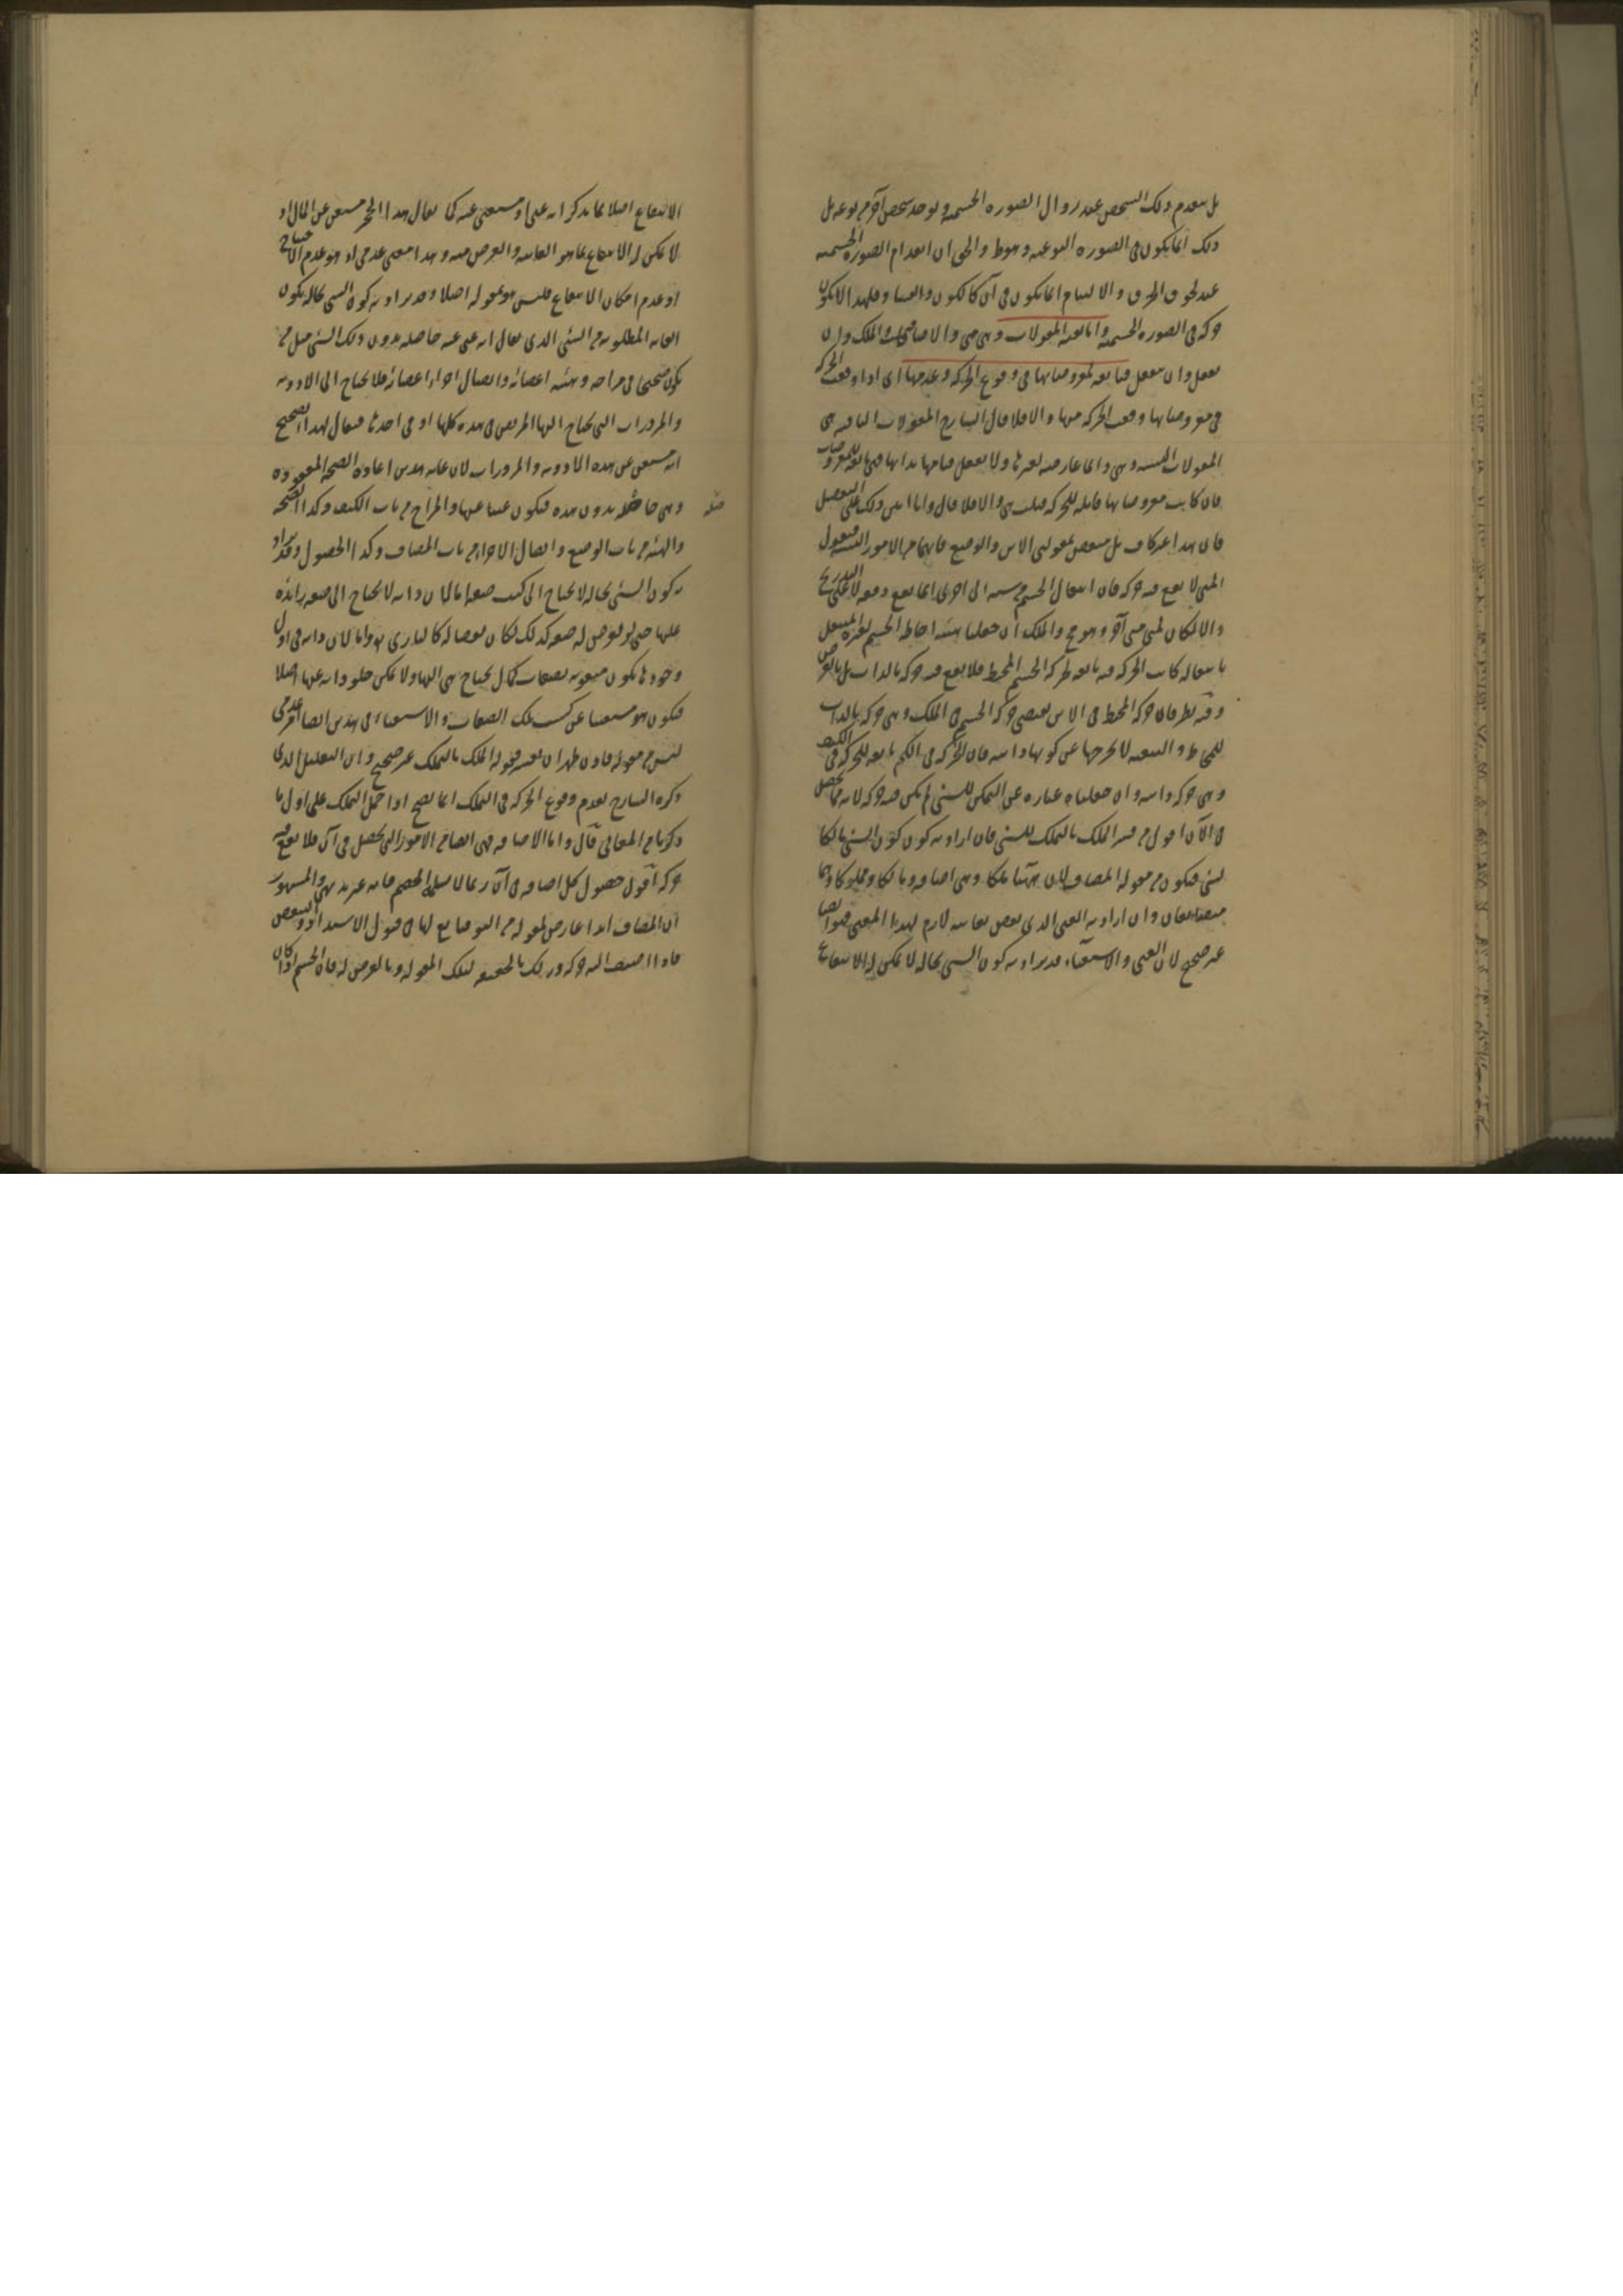 بل ينعدم ذلك الشخص عند زوال الصورة الجسمية ويوجد شخص آخر من نوعه بل
ذلك انما يكون في الصورة النوعية وهو ط والحق ان انعدام الصورة الجسمية
عند لحوق الخرق والالتيام انما يكون في آن كالكون والفساد فلهذا لا يكون
حركة في الصورة الجسمية واما بقية المقولات وهي متى والاضافة والملك وان
يفعل وان ينفعل فتابعة لمعروضاتها في وقوع الحركة وعدمها اى اذا وقعت الحركة
في معروضاتها وقعت الحركة فيها والا فلا قال الشارح المقولات الباقية هي
المقولات النسبية وهي دائما عارضة لغيرها ولا يعقل قيامها بذاتها فهي تابعة للمعروضات
فان كانت معروضاتها قابلة للحركة قبلت هي والا فلا قال وانا ابين ذلك على التفصيل
فان هذا غير كاف بل منقوض بمقولتى الاين والوضع فانهما من الامور النسبية فنقول
المتى لا يقع فيه حركة فان انتقال الجسم من سنة الى اخرى انما يقع دفعة لا على التدريج
والا لكان لمتى متى آخر وهو مح والملك ان جعلناه هيئة احاطة الجسم بغيره المنتقل
بانتقاله كانت الحركة فيه تابعة لحركة الجسم المحيط فلا يقع فيه حركة بالذات بل بالعرض
وفيه نظر فان حركة المحيط في الاين تقتضى حركة الجسم في الملك وهي حركة بالذات
للمحاط والتبعية لا تخرجها عن كونها ذاتية فان الحركة في الكم تابعة للحركة في الكيف
وهي حركة ذاتية وان جعلناه عبارة عن التملك للشئ لم يكن فيه حركة لانه مما يحصل
في الآن اقول من فسر الملك بالتملك للشئ فان اراد به كون كون الشئ مالكا
لشئ فيكون من مقولة المضاف لان ههنا ملكا وهي اضافة ومالكا ومملوكا وهما
متضايفان وان اراد به الغنى الذى بعض معانيه لازم لهذا المعنى فهو ايضا
غير صحيح لان الغنى والاستغناء قد يراد به كون الشئ بحالة لا يمكن له الانتفاع
الانتفاع اصلا بما يذكر انه غنى او مستغنى عنه كما يقال هذا الحجر مستغن عن المال اذ
لا يمكن له الانتفاع بما هو الغاية والغرض منه وهذا معنى عدمى اذ هو عدم الاحتياج
او عدم امكان الانتفاع فليس هو مقولة اصلا وقد يراد به كون الشئ بحالة يكون
الغاية المطلوبة من الشئ الذى يقال انه غنى عنه حاصلة بدون ذلك الشئ مثل من
يكون صحيحا في مزاجه وهيئة اعضائه واتصال اجزاء اعضائه فلا يحتاج الى الادوية
والمزورات التى يحتاج اليها المريض في هذه كلها او في احدها فيقال لهذا الصحيح
انه مستغن عن هذه الادوية والمزورات لان غاية هذين اعادة الصحة المفقودة
وهي حاصلة بدون هذه فيكون غنيا عنها والمزاج من باب الكيف وكذا الصحة
والهيئة من باب الوضع واتصال الاجزاء من باب المضاف وكذا الحصول وقد يراد
به كون الشئ بحالة لا يحتاج الى كسب صفة اما لان ذاته لا يحتاج الى صفة زائدة
عليها حتى لو فرض له صفة كذلك لكان نقصا له كالبارى تع واما لان ذاته في اول
وجودها يكون منعوتة بصفات كمال يحتاج هي اليها ولا يمكن خلو ذاته عنها اصلا
فيكون هو مستغنيا عن كسب تلك الصفات والاستغناء في هذين ايضا امر عدمى
ليس من مقولة فاذن ظهر ان تفسير مقولة الملك بالتملك غير صحيح وان التعليل الذى
ذكره الشارح لعدم وقوع الحركة في التملك انما يصح اذا حمل التملك على اول ما
ذكرنا من المعانى قال واما الاضافة فهي ايضا من الامور التى تحصل في آن فلا يقع فيه
حركة اقول حصول كل اضافة في آن ربما لا يسلمه الخصم فانه غير بديهى والمشهور
ان المضاف ابدا عارض لمقولة من البواقى تابع لها في قبول الاشتداد والتنقص
فاذا اضيف اليه حركة فذلك بالحقيقة لتلك المقولة وبالعرض له فان الجسم اذا كان